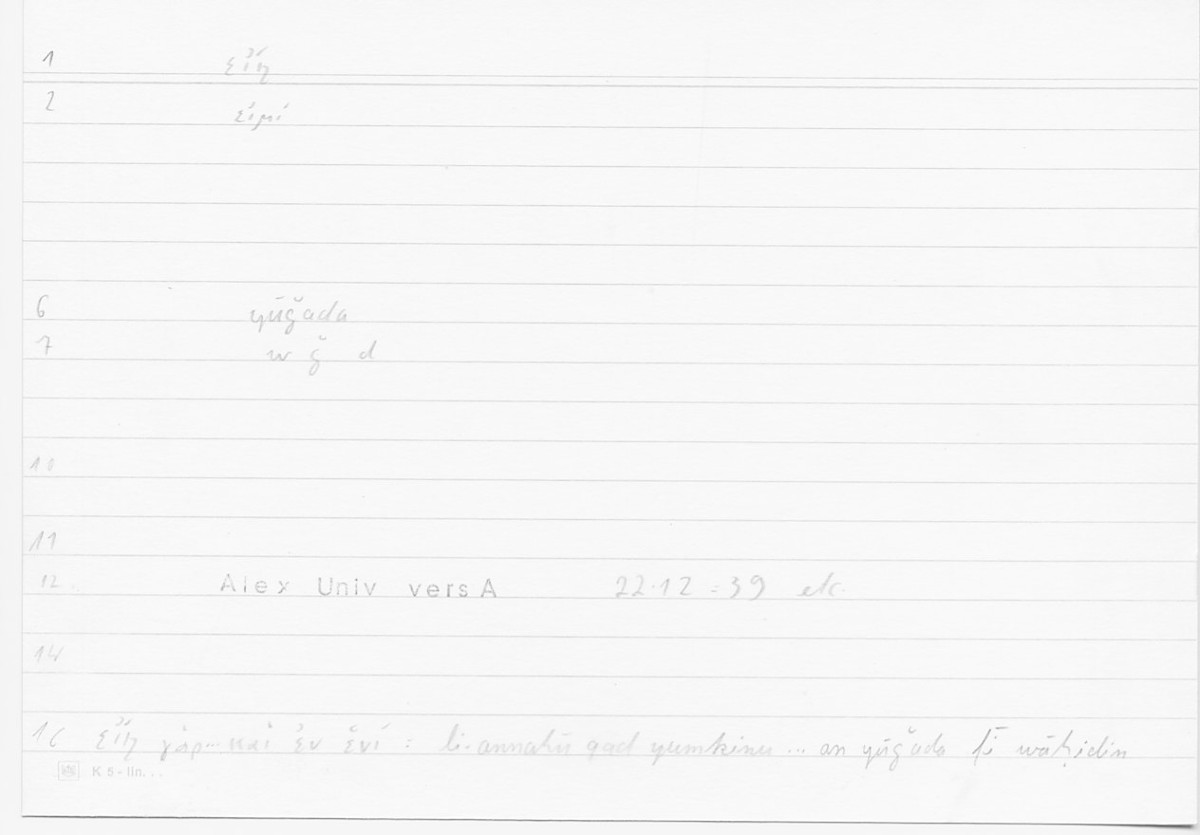 1 εἴη
2 εἰμί
6 yūǧada
7 w ǧ d
10
11
12 Alex Univ vers A 22.12 = 39 etc.
14
εἴη γὰρ... καὶ ἐν ἑνί : li-annahū qad yumkinu ... an yūǧada fī wāḥidin
K 5 - lin. . .